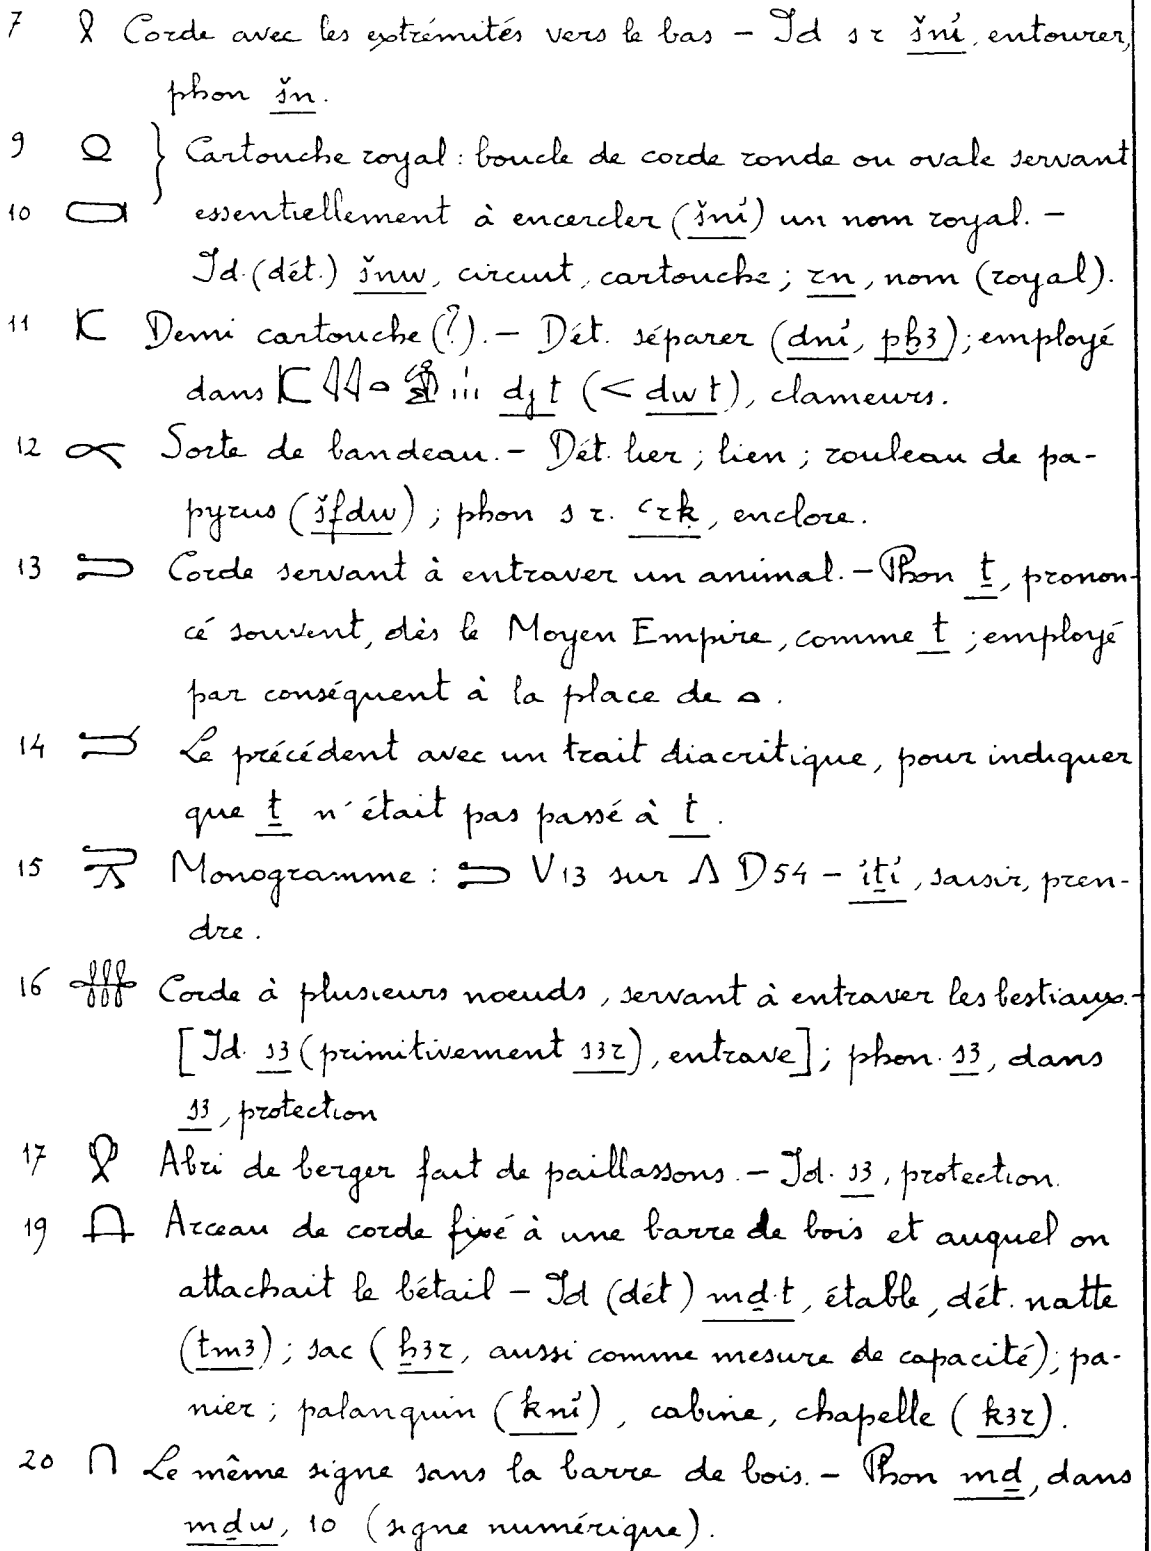 7 𓍷 Corde avec les extrémités vers le bas – Id s r šnỉ, entourer,
phon šn.
9 𓍶 } Cartouche royal : boucle de corde ronde ou ovale servant
10 𓍷 essentiellement à encercler (šnỉ) un nom royal. –
Id. (dét.) šnw, circuit, cartouche ; rn, nom (royal).
11 Demi cartouche (?). – Dét. séparer (dnỉ, pẖ3) ; employé
dans 𓍹𓇋𓇋𓏏𓀁𓏥 dyt (< dwt), clameurs.
12 𓍼 Sorte de bandeau. – Dét. lier ; lien ; rouleau de pa-
pyrus (šfdw) ; phon s r. ꜥrḳ, enclore.
13 𓍿 Corde servant à entraver un animal. – Phon ṯ, pronon-
cé souvent, dès le Moyen Empire, comme t ; employé
par conséquent à la place de 𓏏.
14 𓎀 Le précédent avec un trait diacritique, pour indiquer
que ṯ n'était pas passé à t.
15 𓎁 Monogramme : 𓍿 V13 sur 𓂻 D54 – ỉṯỉ, saisir, pren-
dre.
16 𓎂 Corde à plusieurs noeuds, servant à entraver les bestiaux. –
[Id. s3 (primitivement s3r), entrave] ; phon. s3, dans
s3, protection
17 𓎃 Abri de berger fait de paillassons. – Id. s3, protection.
19 𓎅 Arceau de corde fixé à une barre de bois et auquel on
attachait le bétail – Id (dét) mḏ.t, étable, dét. natte
(tm3) ; sac (ẖ3r, aussi comme mesure de capacité) ; pa-
nier ; palanquin (ḳnỉ), cabine, chapelle (k3r).
20 𓎆 Le même signe sans la barre de bois. – Phon mḏ, dans
mḏw, 10 (signe numérique).